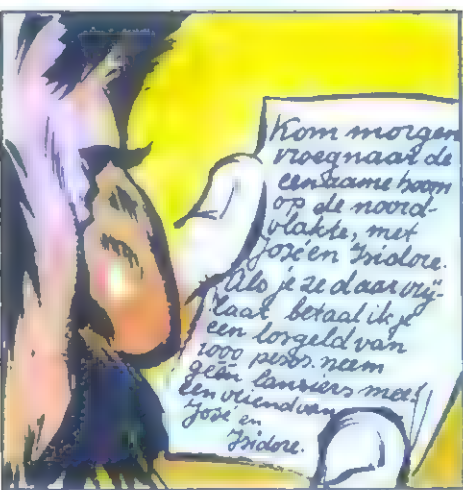 Kom morgen
vroeg naar de
eenzame boom
op de noord-
vlakte, met
José en Isidore.
Als je ze daar vrij-
laat, betaal ik je
een losgeld van
1000 pesos. neem
geen lansiers mee!
een vriend van
José en
Isidore.